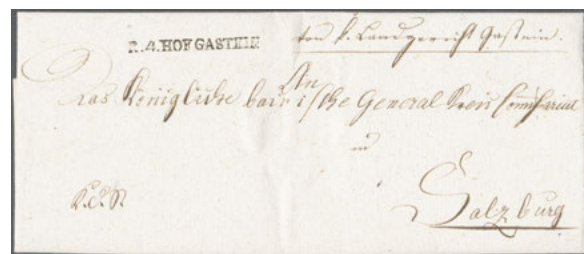 R.4.HOFGASTEIN von k. Landgericht Gastein.
An
Das Königliche bairische General Kreis Commissariat
in
Salzburg